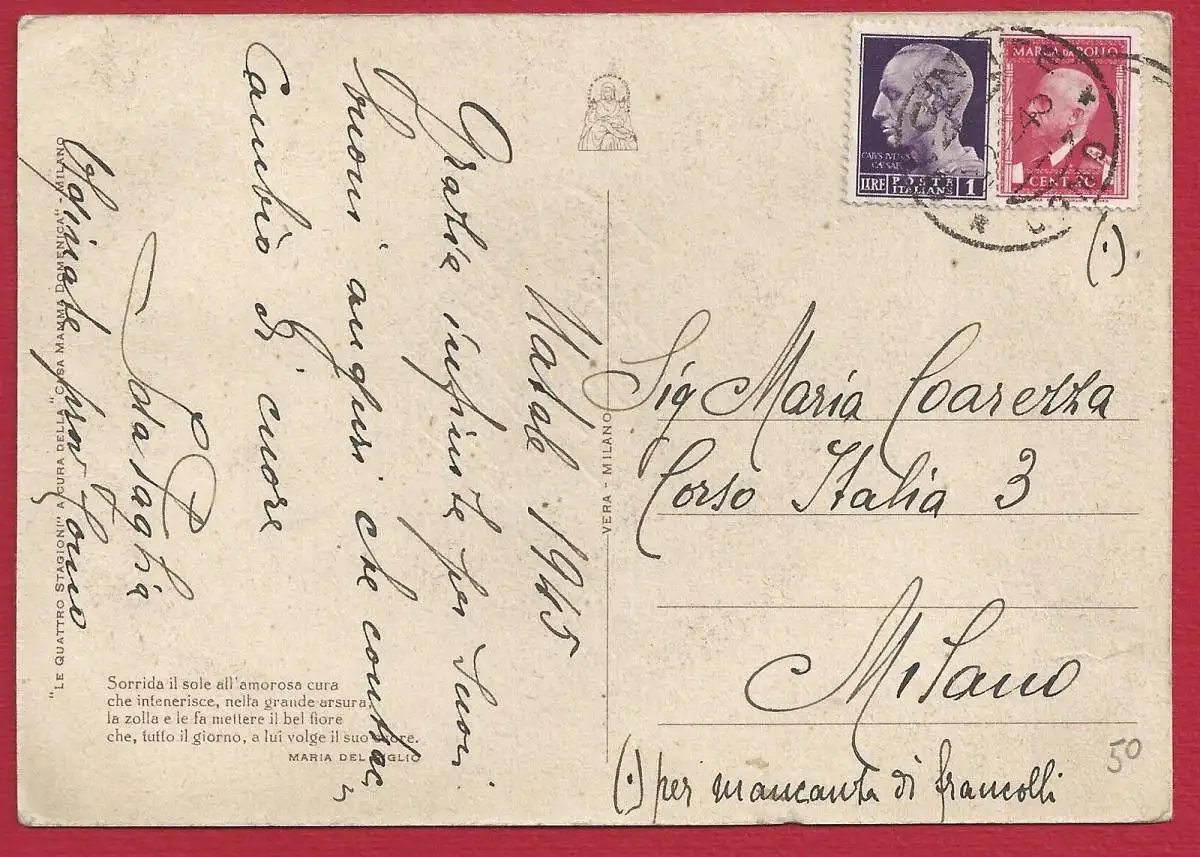 Natale 1945
Grazie infinite per Suoi
buoni auguri che contrac=
cambio di cuore
Ida Saglia
"LE QUATTRO STAGIONI" A CURA DELLA "CASA MAMMA DOMENICA" - MILANO
Sorrida il sole all'amorosa cura
che intenerisce, nella grande arsura,
la zolla e le fa mettere il bel fiore
che, tutto il giorno, a lui volge il suo cuore.
MARIA DEL GIGLIO
VERA - MILANO
CAIVS IVLIVS
CAESAR
LIRE POSTE ITALIANE 1
MARCA DA BOLLO
CENT.
(.)
Sig Maria Coarezza
Corso Italia 3
Milano
(.) per mancanza di francolli
50